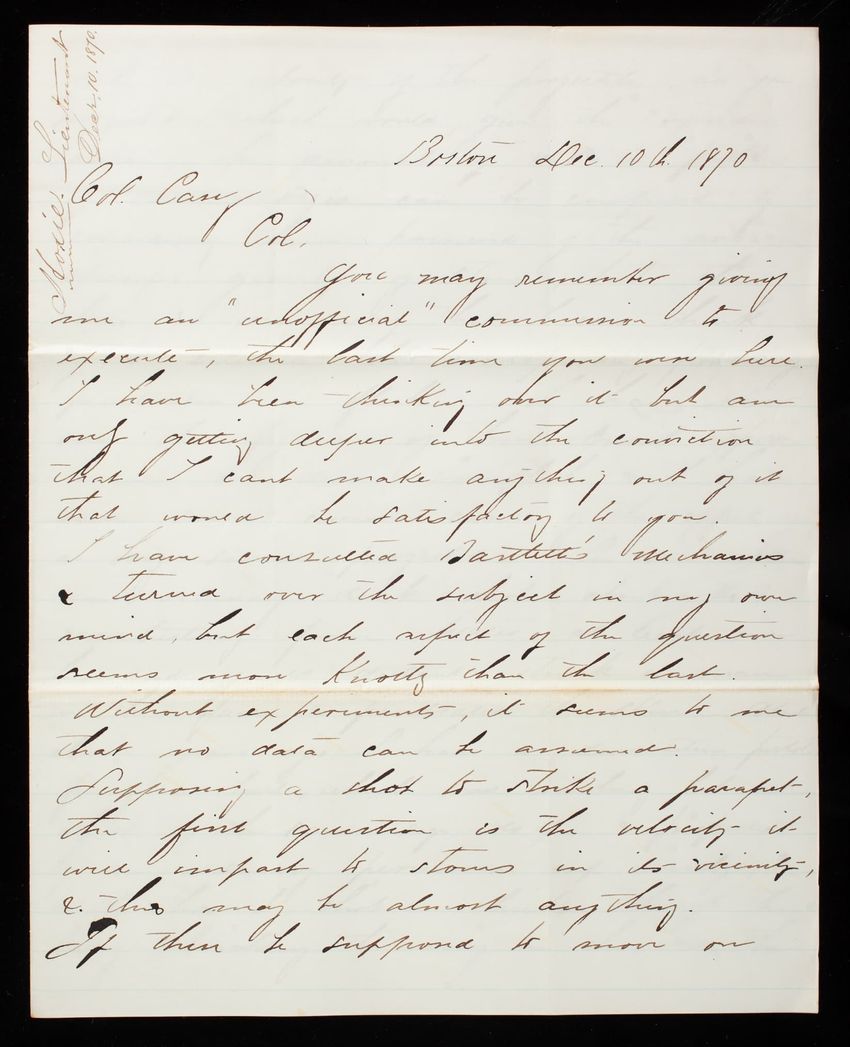 Hoxie. Lieutenant
Decr. 10. 1870.
Boston Dec. 10th 1870
Col. Casey
Col.
You may remember giving
me an "unofficial" commission to
execute, the last time you were here.
I have been thinking over it but am
only getting deeper into the conviction
that I cant make anything out of it
that would be satisfactory to you.
I have consulted Bartlett's Mechanics
& turned over the subject in my own
mind, but each aspect of the question
seems more Knotty than the last.
Without experiments, it seems to me
that no data can be assumed.
Supposing a shot to strike a parapet,
the first question is the velocity it
will impart to stones in its vicinity,
& this may be almost anything.
If then be supposed to move on